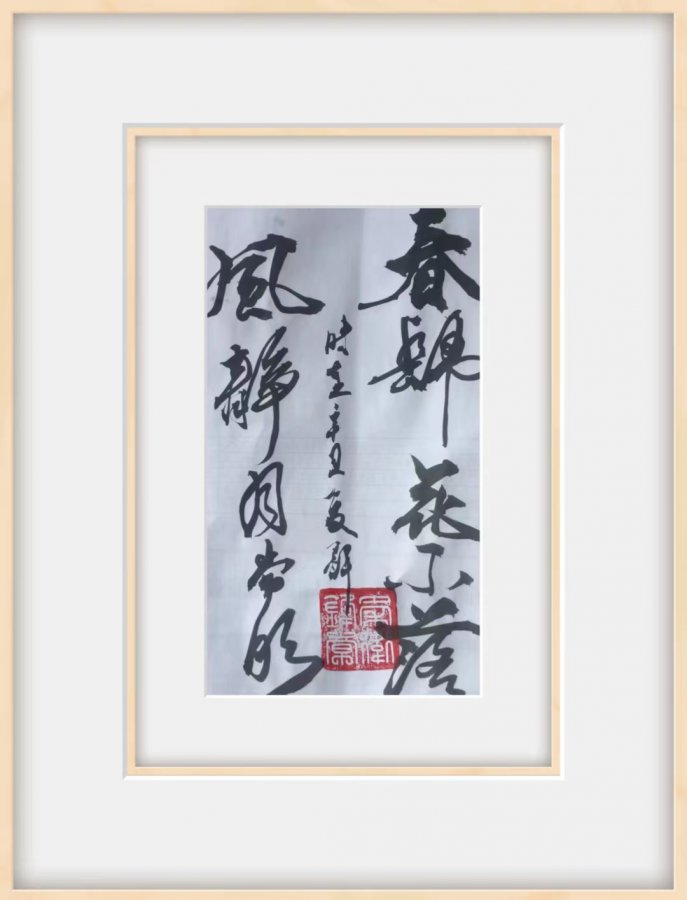 春歸花不落
風靜月常明
時在辛丑夏